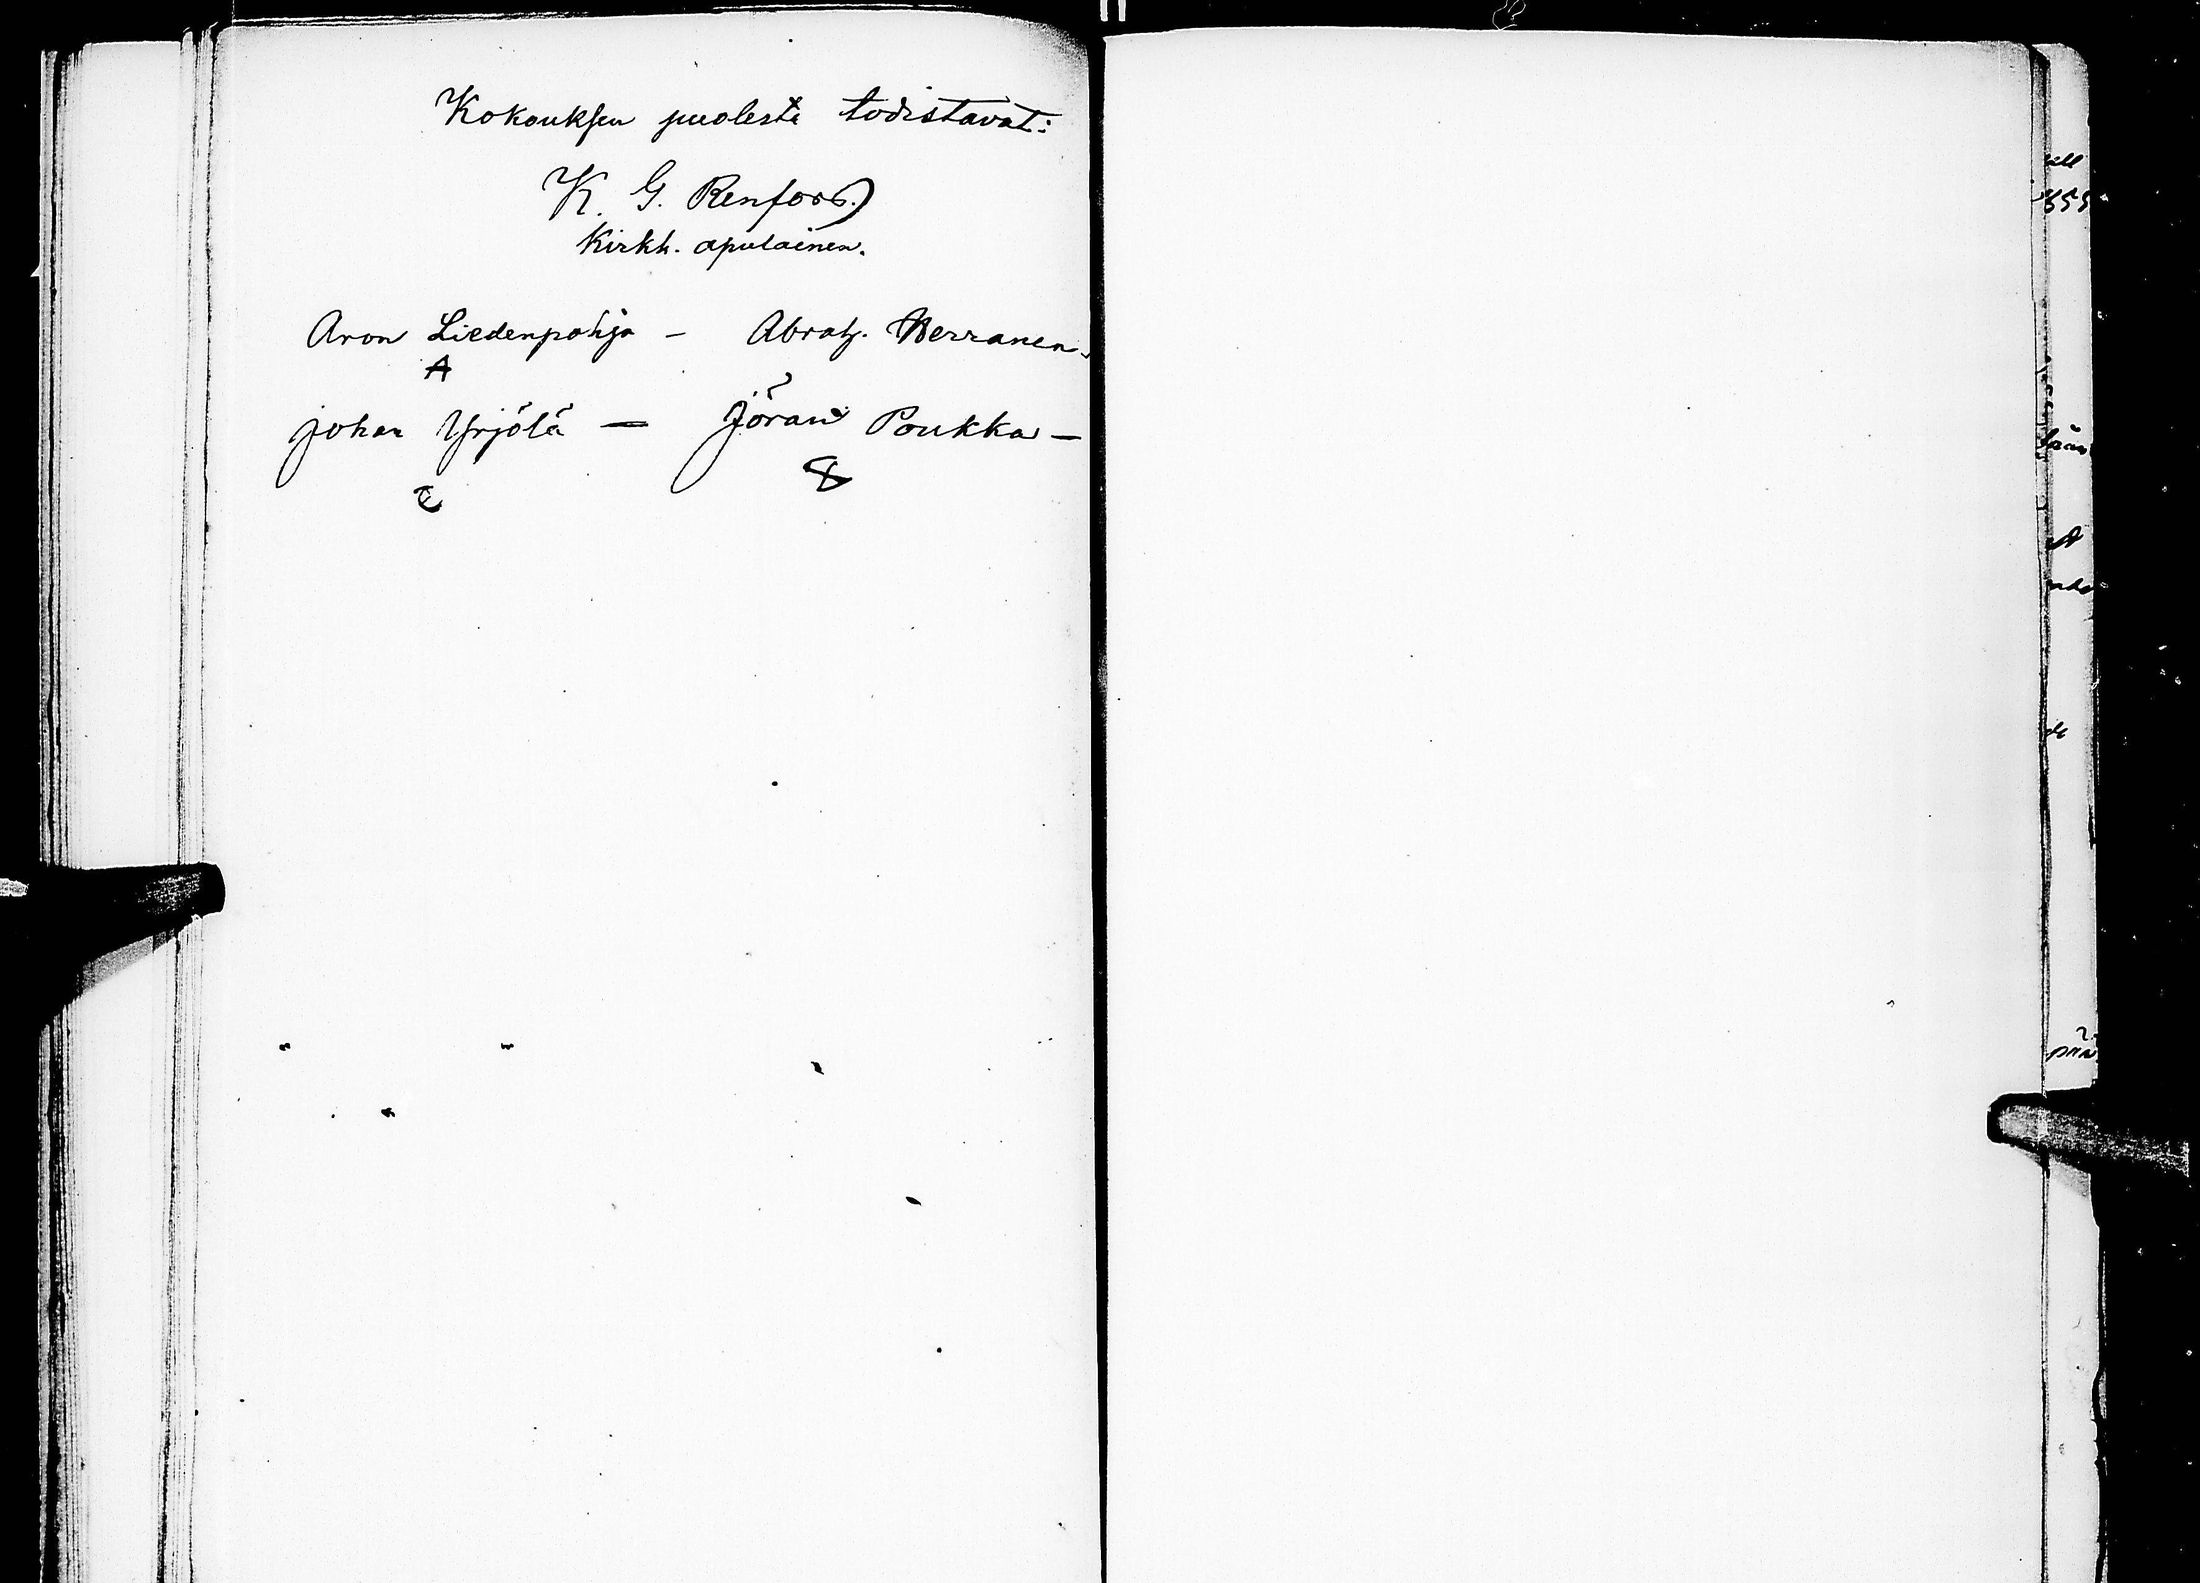 Kokouksen puolesta todistavat:
K. G. Renfors.
Kirkh. apulainen.
Aron Liedenpohja — Abrah. Herranen.
A
Johan Yrjölä — Jöran Poukka —